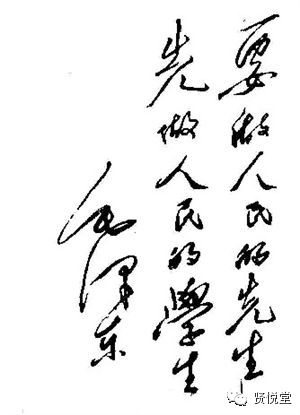 要做人民的先生
先做人民的學生
毛泽东
贤悦堂